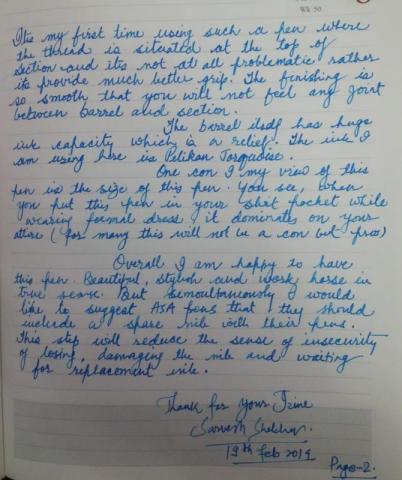 Wk 50
It's my first time using such a pen where
the thread is situated at the top of
section and its not at all problematic rather
its provide much better grip. The finishing is
so smooth that you will not feel any joint
between barrel and section.
The barrel itself has huge
ink capacity which is a relief. The ink I
am using here is Pelikan Torquoise.
One con I my view of this
pen is the size of this pen. You see, when
you put this pen in your shirt pocket while
wearing formal dress, it dominates on your
attire (for many this will not be a con but pros)
Overall I am happy to have
this pen. Beautiful, stylish and work horse in
true sense. But simoultaneously I would
like to suggest ASA pens that they should
include a spare nib with their pens.
This step will reduce the sense of insecurity
of losing, damaging the nib and waiting
for replacement nib.
Thank for your Time
19th Feb 2019
Page-2.